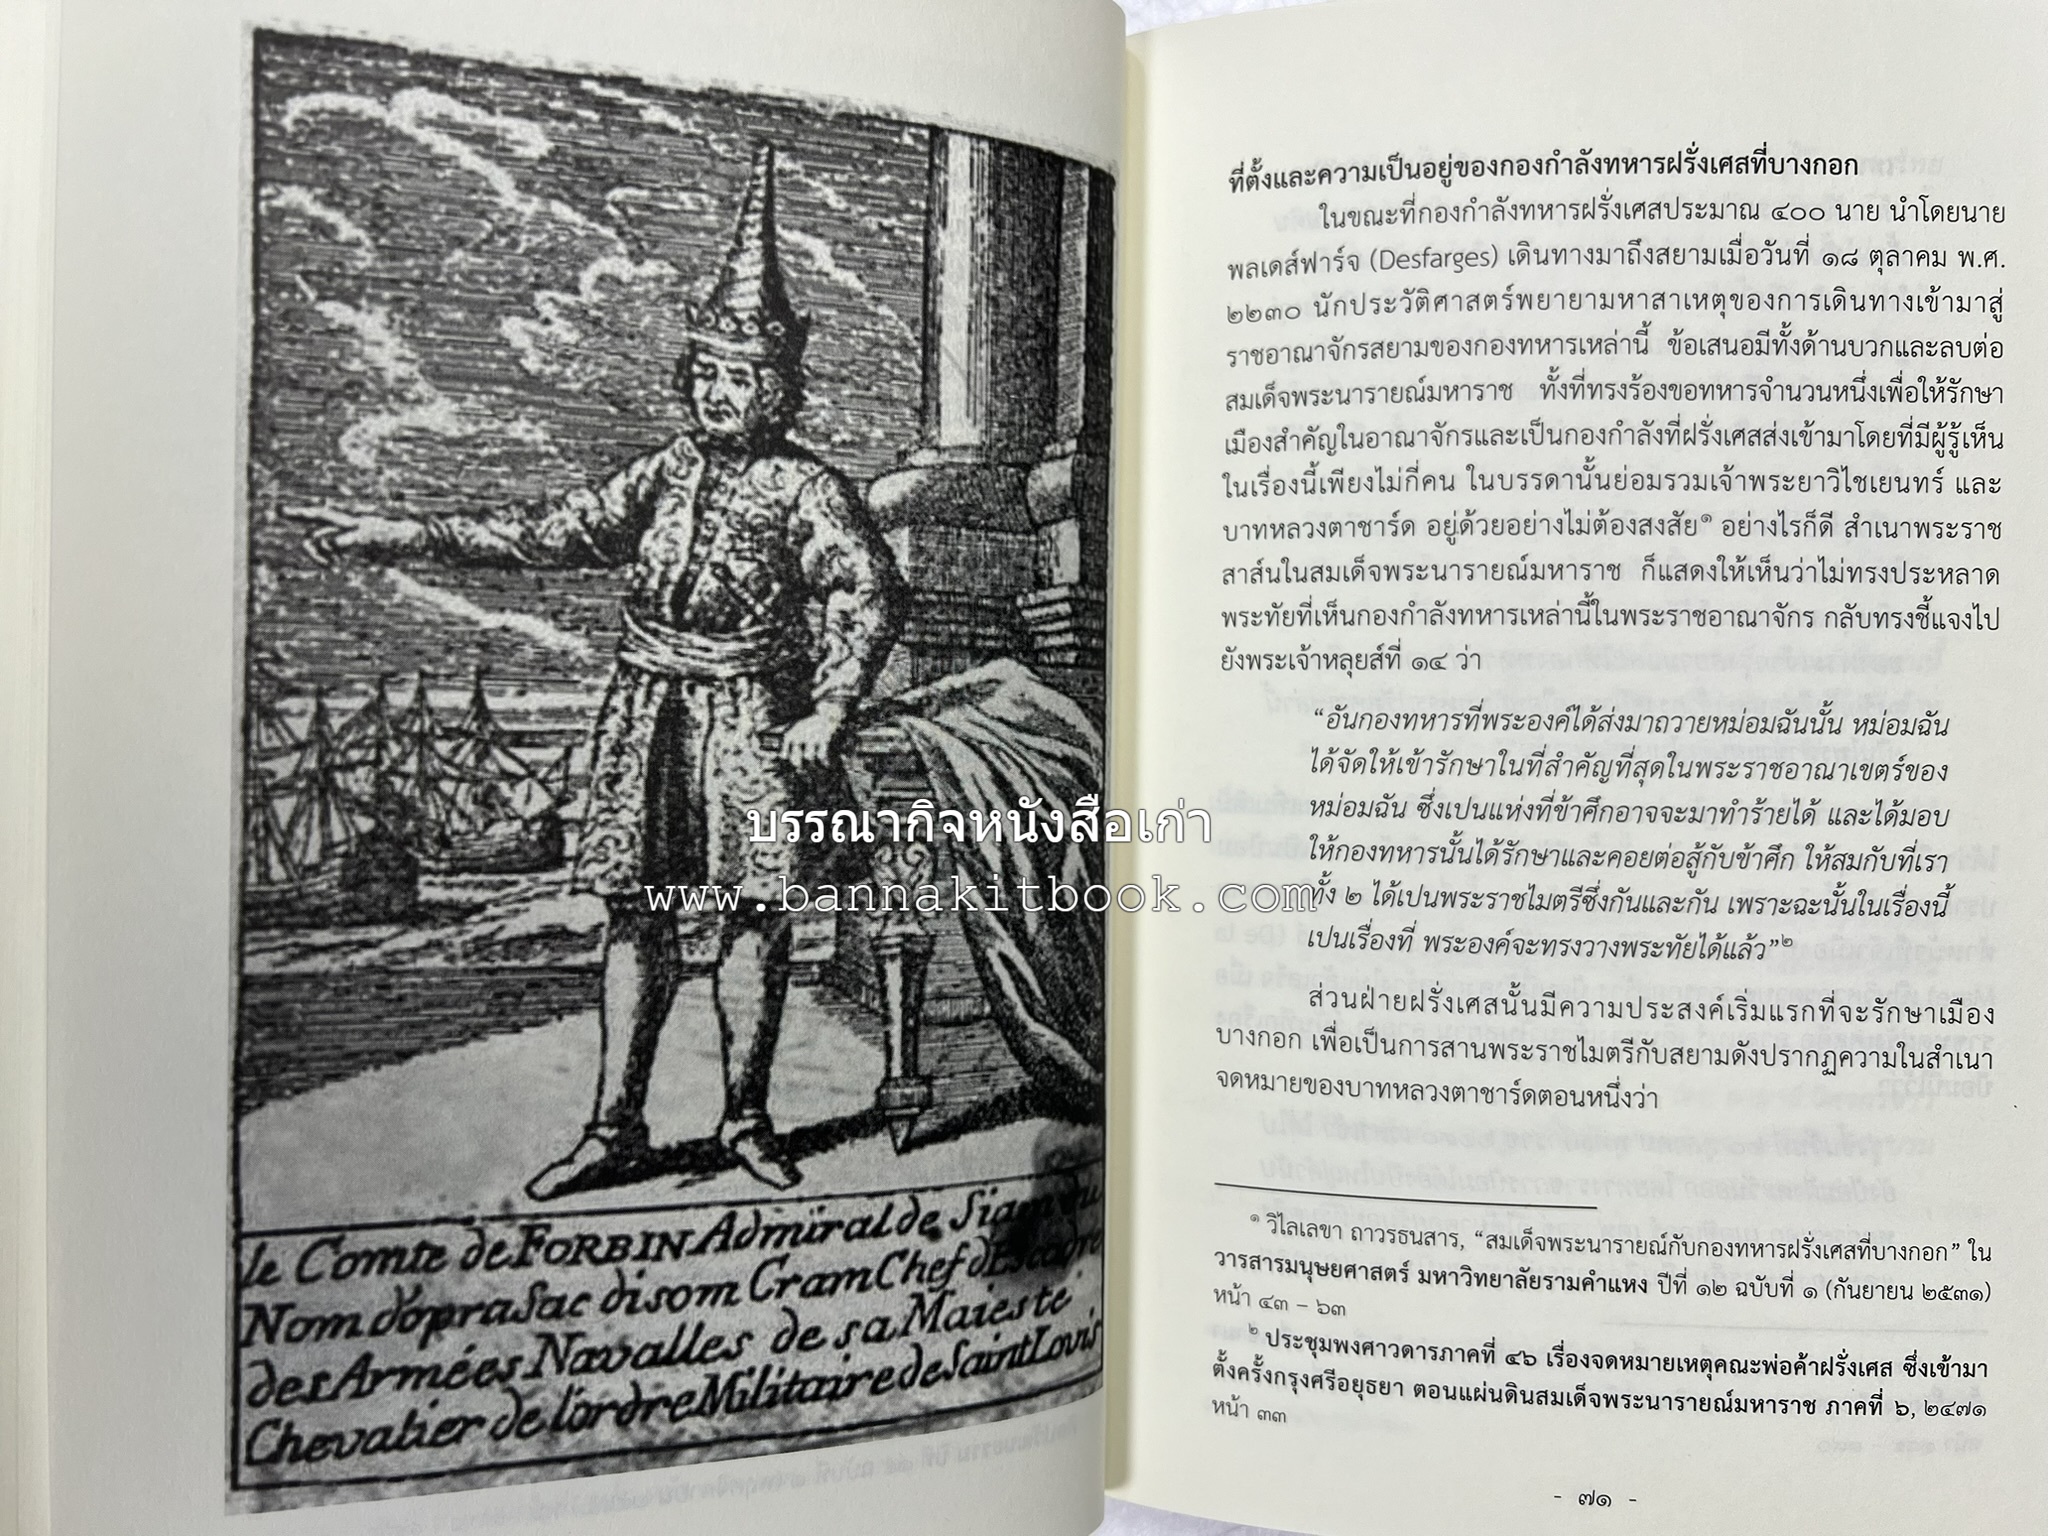 le Comte de FORBIN Admiral de Siam du
Nom dopra Sac disom Cram Chef d'Escadre
des Armées Navalles de sa Maieste
Chevalier de l'ordre Militaire de Saint Lovis
บรรณากิจหนังสือเก่า
www.bannakitbook.com
ที่ตั้งและความเป็นอยู่ของกองกำลังทหารฝรั่งเศสที่บางกอก
ในขณะที่กองกำลังทหารฝรั่งเศสประมาณ ๔๐๐ นาย นำโดยนาย
พลเดส์ฟาร์จ (Desfarges) เดินทางมาถึงสยามเมื่อวันที่ ๑๘ ตุลาคม พ.ศ.
๒๒๓๐ นักประวัติศาสตร์พยายามหาสาเหตุของการเดินทางเข้ามาสู่
ราชอาณาจักรสยามของกองทหารเหล่านี้ ข้อเสนอมีทั้งด้านบวกและลบต่อ
สมเด็จพระนารายณ์มหาราช ทั้งที่ทรงร้องขอทหารจำนวนหนึ่งเพื่อให้รักษา
เมืองสำคัญในอาณาจักรและเป็นกองกำลังที่ฝรั่งเศสส่งเข้ามาโดยที่มีผู้รู้เห็น
ในเรื่องนี้เพียงไม่กี่คน ในบรรดานั้นย่อมรวมเจ้าพระยาวิไชเยนทร์ และ
บาทหลวงตาชาร์ด อยู่ด้วยอย่างไม่ต้องสงสัย๑ อย่างไรก็ดี สำเนาพระราช
สาส์นในสมเด็จพระนารายณ์มหาราช ก็แสดงให้เห็นว่าไม่ทรงประหลาด
พระทัยที่เห็นกองกำลังทหารเหล่านี้ในพระราชอาณาจักร กลับทรงชี้แจงไป
ยังพระเจ้าหลุยส์ที่ ๑๔ ว่า
“อันกองทหารที่พระองค์ได้ส่งมาถวายหม่อมฉันนั้น หม่อมฉัน
ได้จัดให้เข้ารักษาในที่สำคัญที่สุดในพระราชอาณาเขตร์ของ
หม่อมฉัน ซึ่งเปนแห่งที่ข้าศึกอาจจะมาทำร้ายได้ และได้มอบ
ให้กองทหารนั้นได้รักษาและคอยต่อสู้กับข้าศึก ให้สมกับที่เรา
ทั้ง ๒ ได้เปนพระราชไมตรีซึ่งกันและกัน เพราะฉะนั้นในเรื่องนี้
เปนเรื่องที่ พระองค์จะทรงวางพระทัยได้แล้ว”๒
ส่วนฝ่ายฝรั่งเศสนั้นมีความประสงค์เริ่มแรกที่จะรักษาเมือง
บางกอก เพื่อเป็นการสานพระราชไมตรีกับสยามดังปรากฏความในสำเนา
จดหมายของบาทหลวงตาชาร์ดตอนหนึ่งว่า
๑ วิไลเลขา ถาวรธนสาร, “สมเด็จพระนารายณ์กับกองทหารฝรั่งเศสที่บางกอก” ใน
วารสารมนุษยศาสตร์ มหาวิทยาลัยรามคำแหง ปีที่ ๑๒ ฉบับที่ ๑ (กันยายน ๒๕๓๑)
หน้า ๔๓ – ๖๓
๒ ประชุมพงศาวดารภาคที่ ๔๖ เรื่องจดหมายเหตุคณะพ่อค้าฝรั่งเศส ซึ่งเข้ามา
ตั้งครั้งกรุงศรีอยุธยา ตอนแผ่นดินสมเด็จพระนารายณ์มหาราช ภาคที่ ๖, ๒๔๗๑
หน้า ๓๓
- ๗๑ -